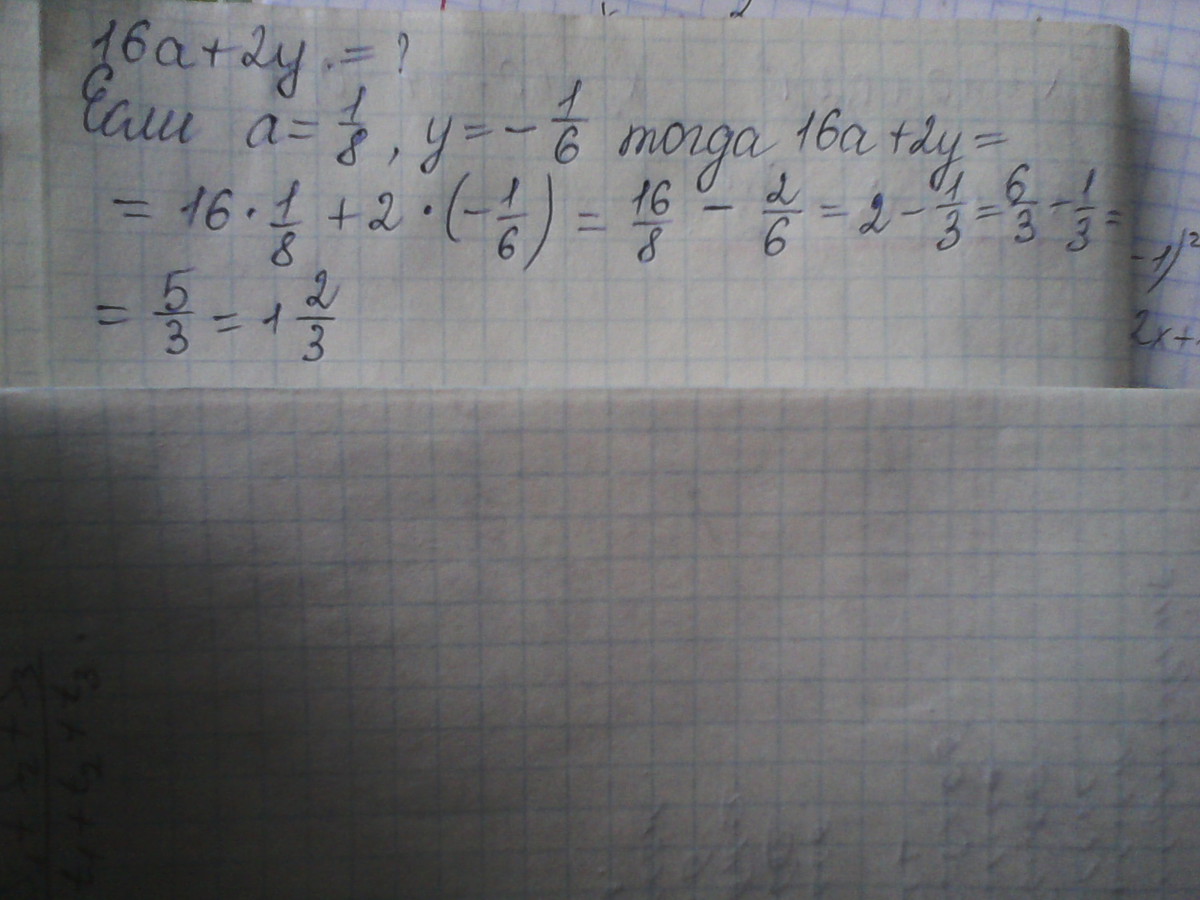 16a+2y = ?
Если a = 1/8, y = - 1/6 тогда 16a+2y =
= 16 · 1/8 + 2 · (- 1/6) = 16/8 - 2/6 = 2 - 1/3 = 6/3 - 1/3 =
= 5/3 = 1 2/3
-1)²
2x+